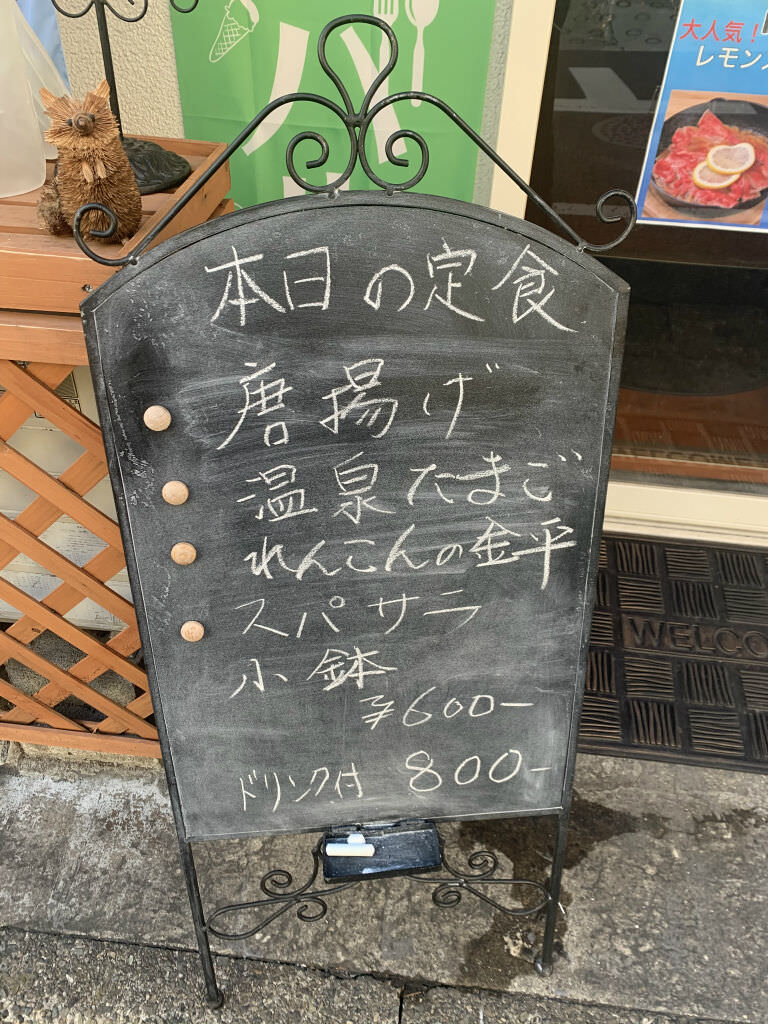 大人気！
レモン
パ
本日の定食
唐揚げ
温泉たまご
れんこんの金平
スパサラ
小鉢
¥600-
ドリンク付 800-
WELCO